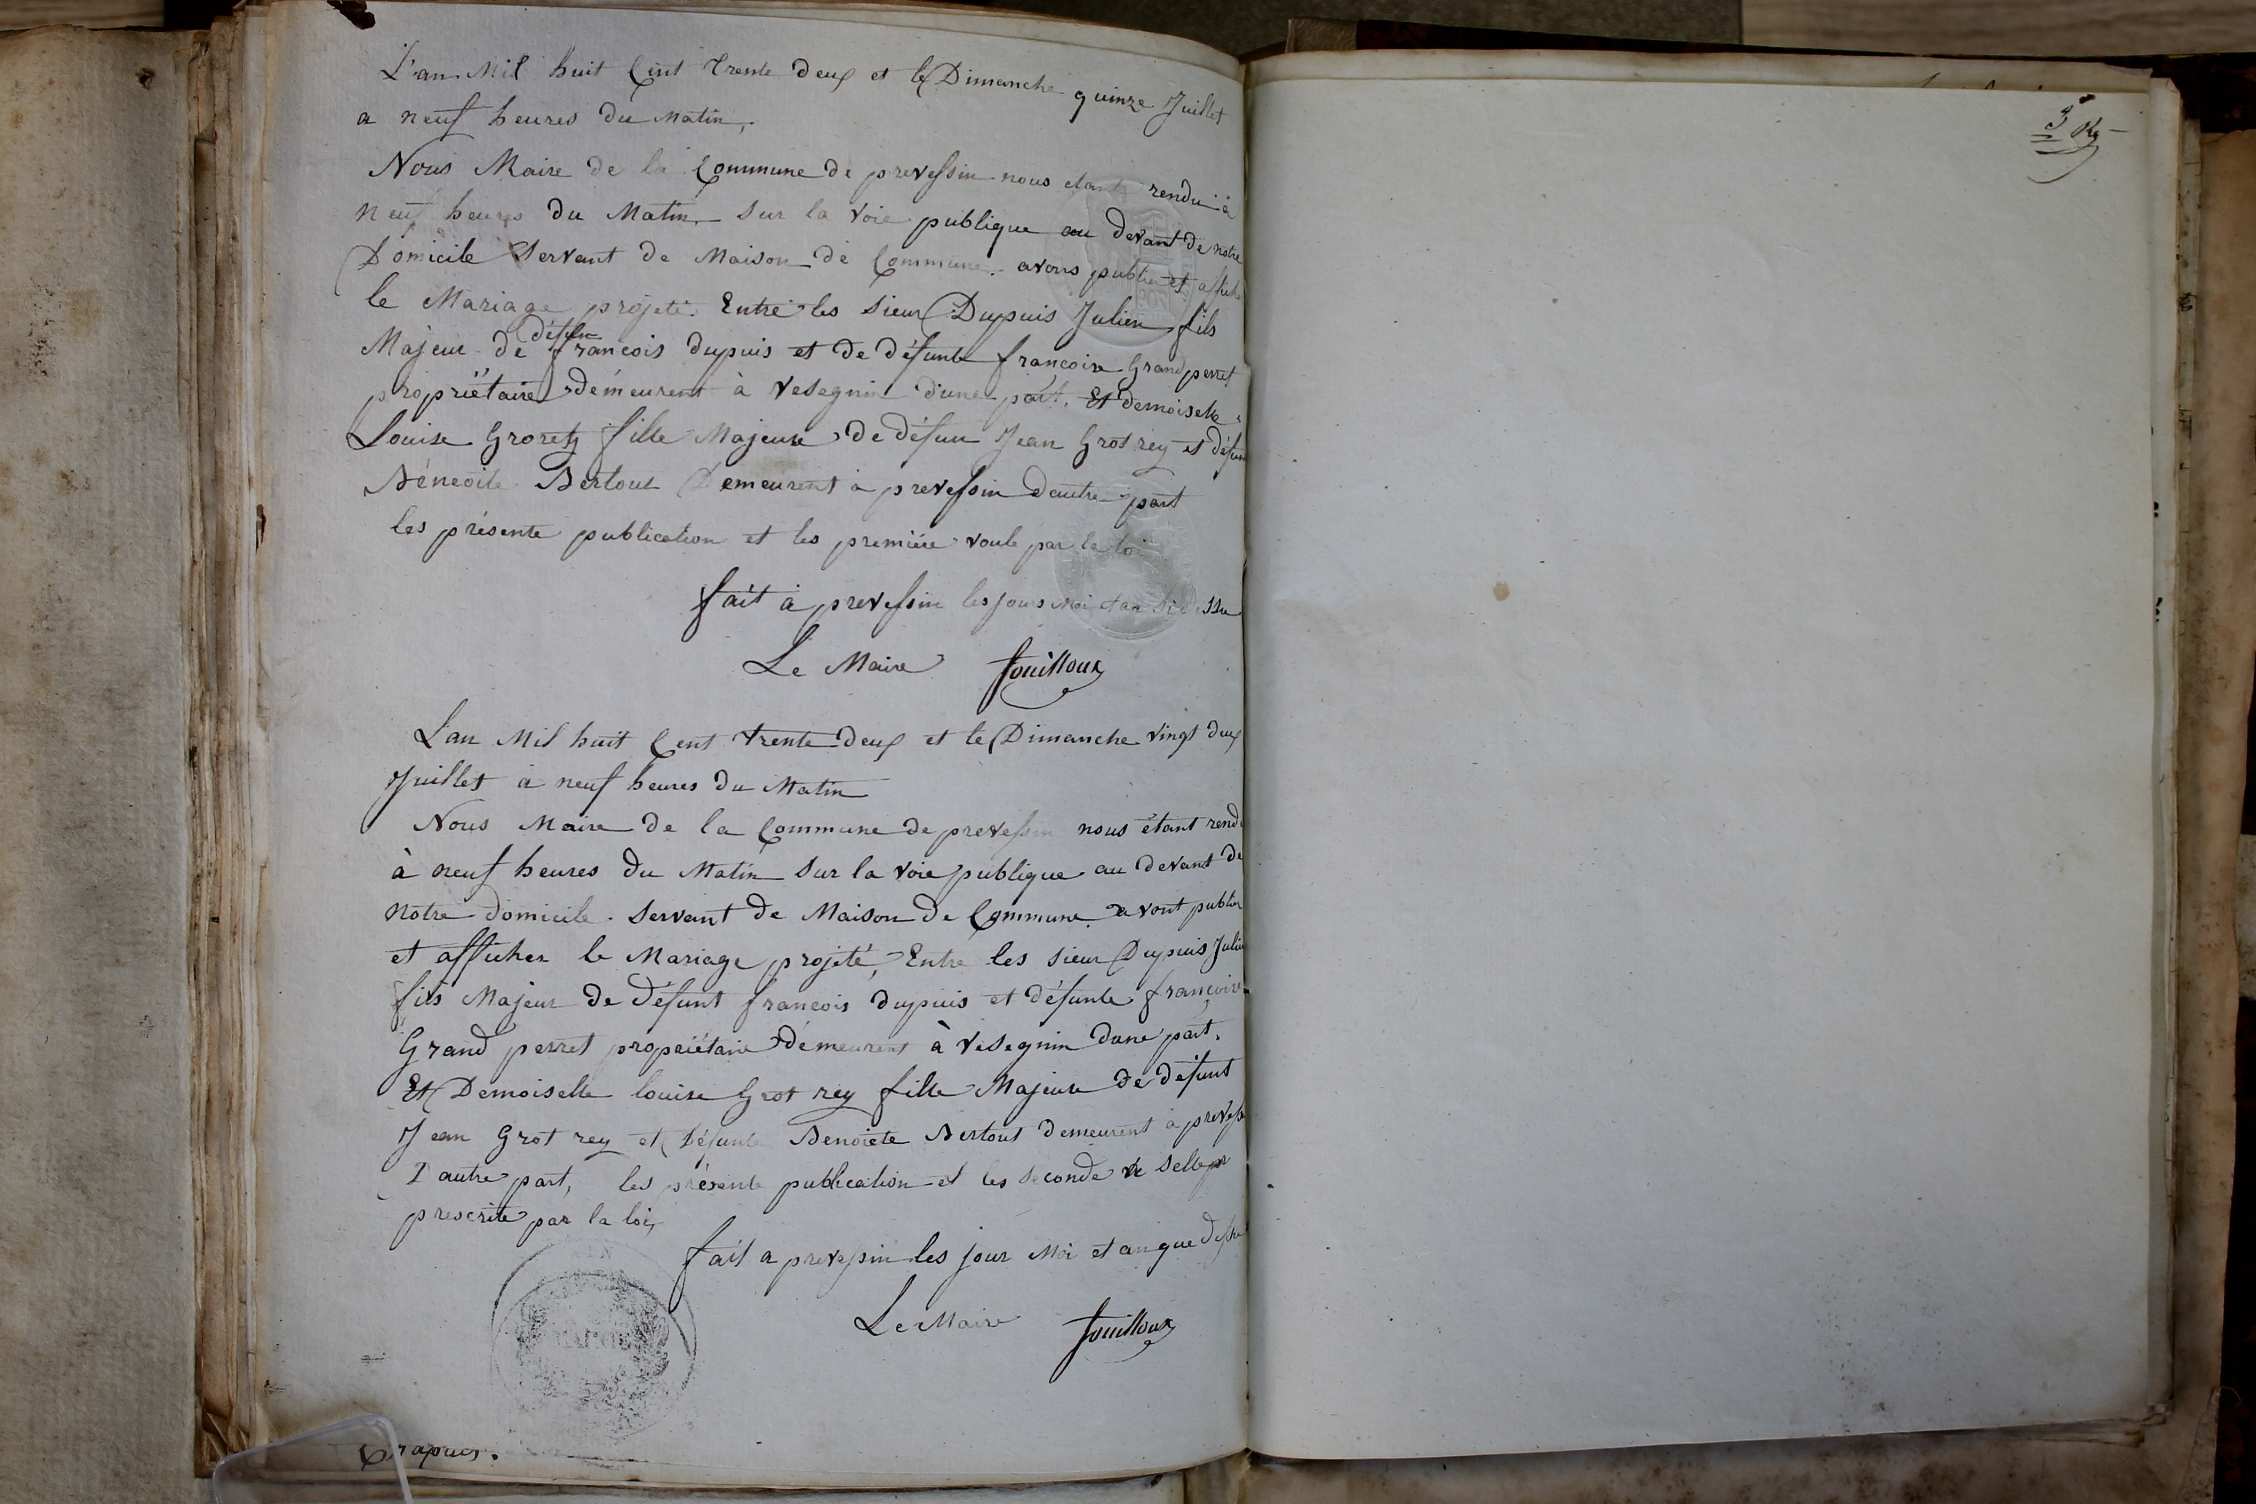 L'an Mil huit Cent trente deux et le Dimanche quinze Juillet
a neuf heures du Matin,
Nous Maire de la Commune de prevessin nous etants rendu à
neuf heures du Matin sur la voie publique au devant de notre
Domicile Servant de Maison de Commune avons publier et affiche
le Mariage projeté Entre les sieur Dupuis Julien fils
Majeur de défun francois dupuis et de défunte francoise Grand perret
propriétaire demeurent à Vesegnin d'une part. Et demoiselle
Louise Grorey fille Majeure de défun Jean Grot rey et défun
Béneoite Bertout Demeurent a prevessin dautre part
les présente publication et les première voule par la loi
fait a prevessin les jours moi et an si dessu
Le Maire fouilloux
L'an Mil huit Cent trente deux et le Dimanche vingt deux
Juillet à neuf heures du Matin
Nous Maire de la Commune de prevessin nous étant rendu
à neuf heures du Matin sur la voie publique au devant de
notre domicile Servant de Maison de Commune avont publier
et afficher le Mariage projeté, Entre les sieur Dupuis Julien
fils Majeur de défunt francois dupuis et défunte françoise
Grand perret propriétaire demeurent à Vesegnin dune part.
Et Demoiselle louise Grot rey fille Majeure de défunt
Jean Grot rey et Défunte Benoiete Bertout demeurent a prevessin
D autre part, les présente publication et les seconde de selle
prescrite par la loi,
fait a prevessin les jour moi et an que dessu
Le Maire fouilloux
AIN